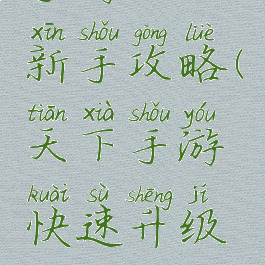 xīn shǒu gōng lüè
新手攻略(
tiān xià shǒu yóu
天下手游
kuài sù shēng jí
快速升级